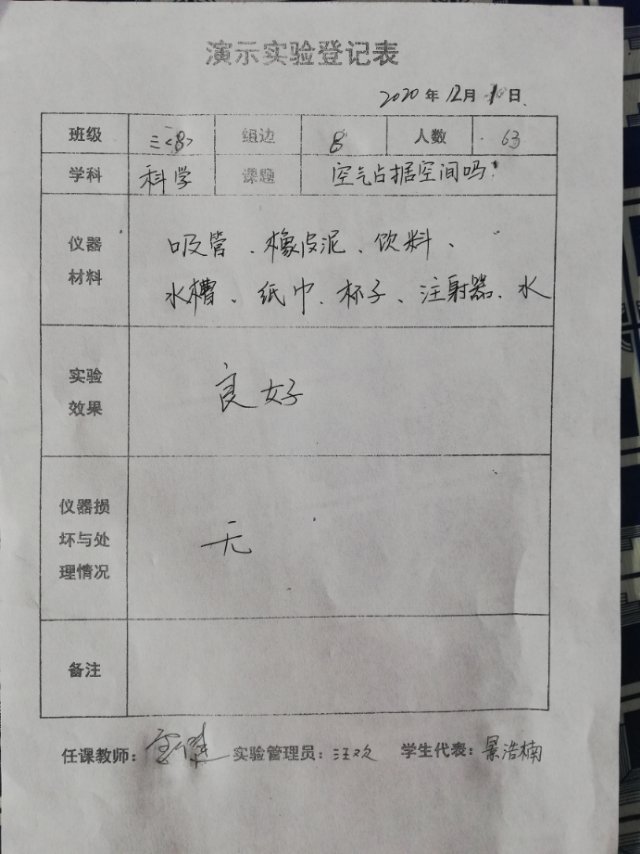 演示实验登记表
2020 年 12 月 1 日
班级 三<8> 组边 8 人数 63
学科 科学 课题 空气占据空间吗?
仪器材料 吸管、橡皮泥、饮料、
水槽、纸巾、杯子、注射器、水
实验效果 良好
仪器损坏与处理情况 无
备注
任课教师: 实验管理员:汪欢 学生代表:景浩楠